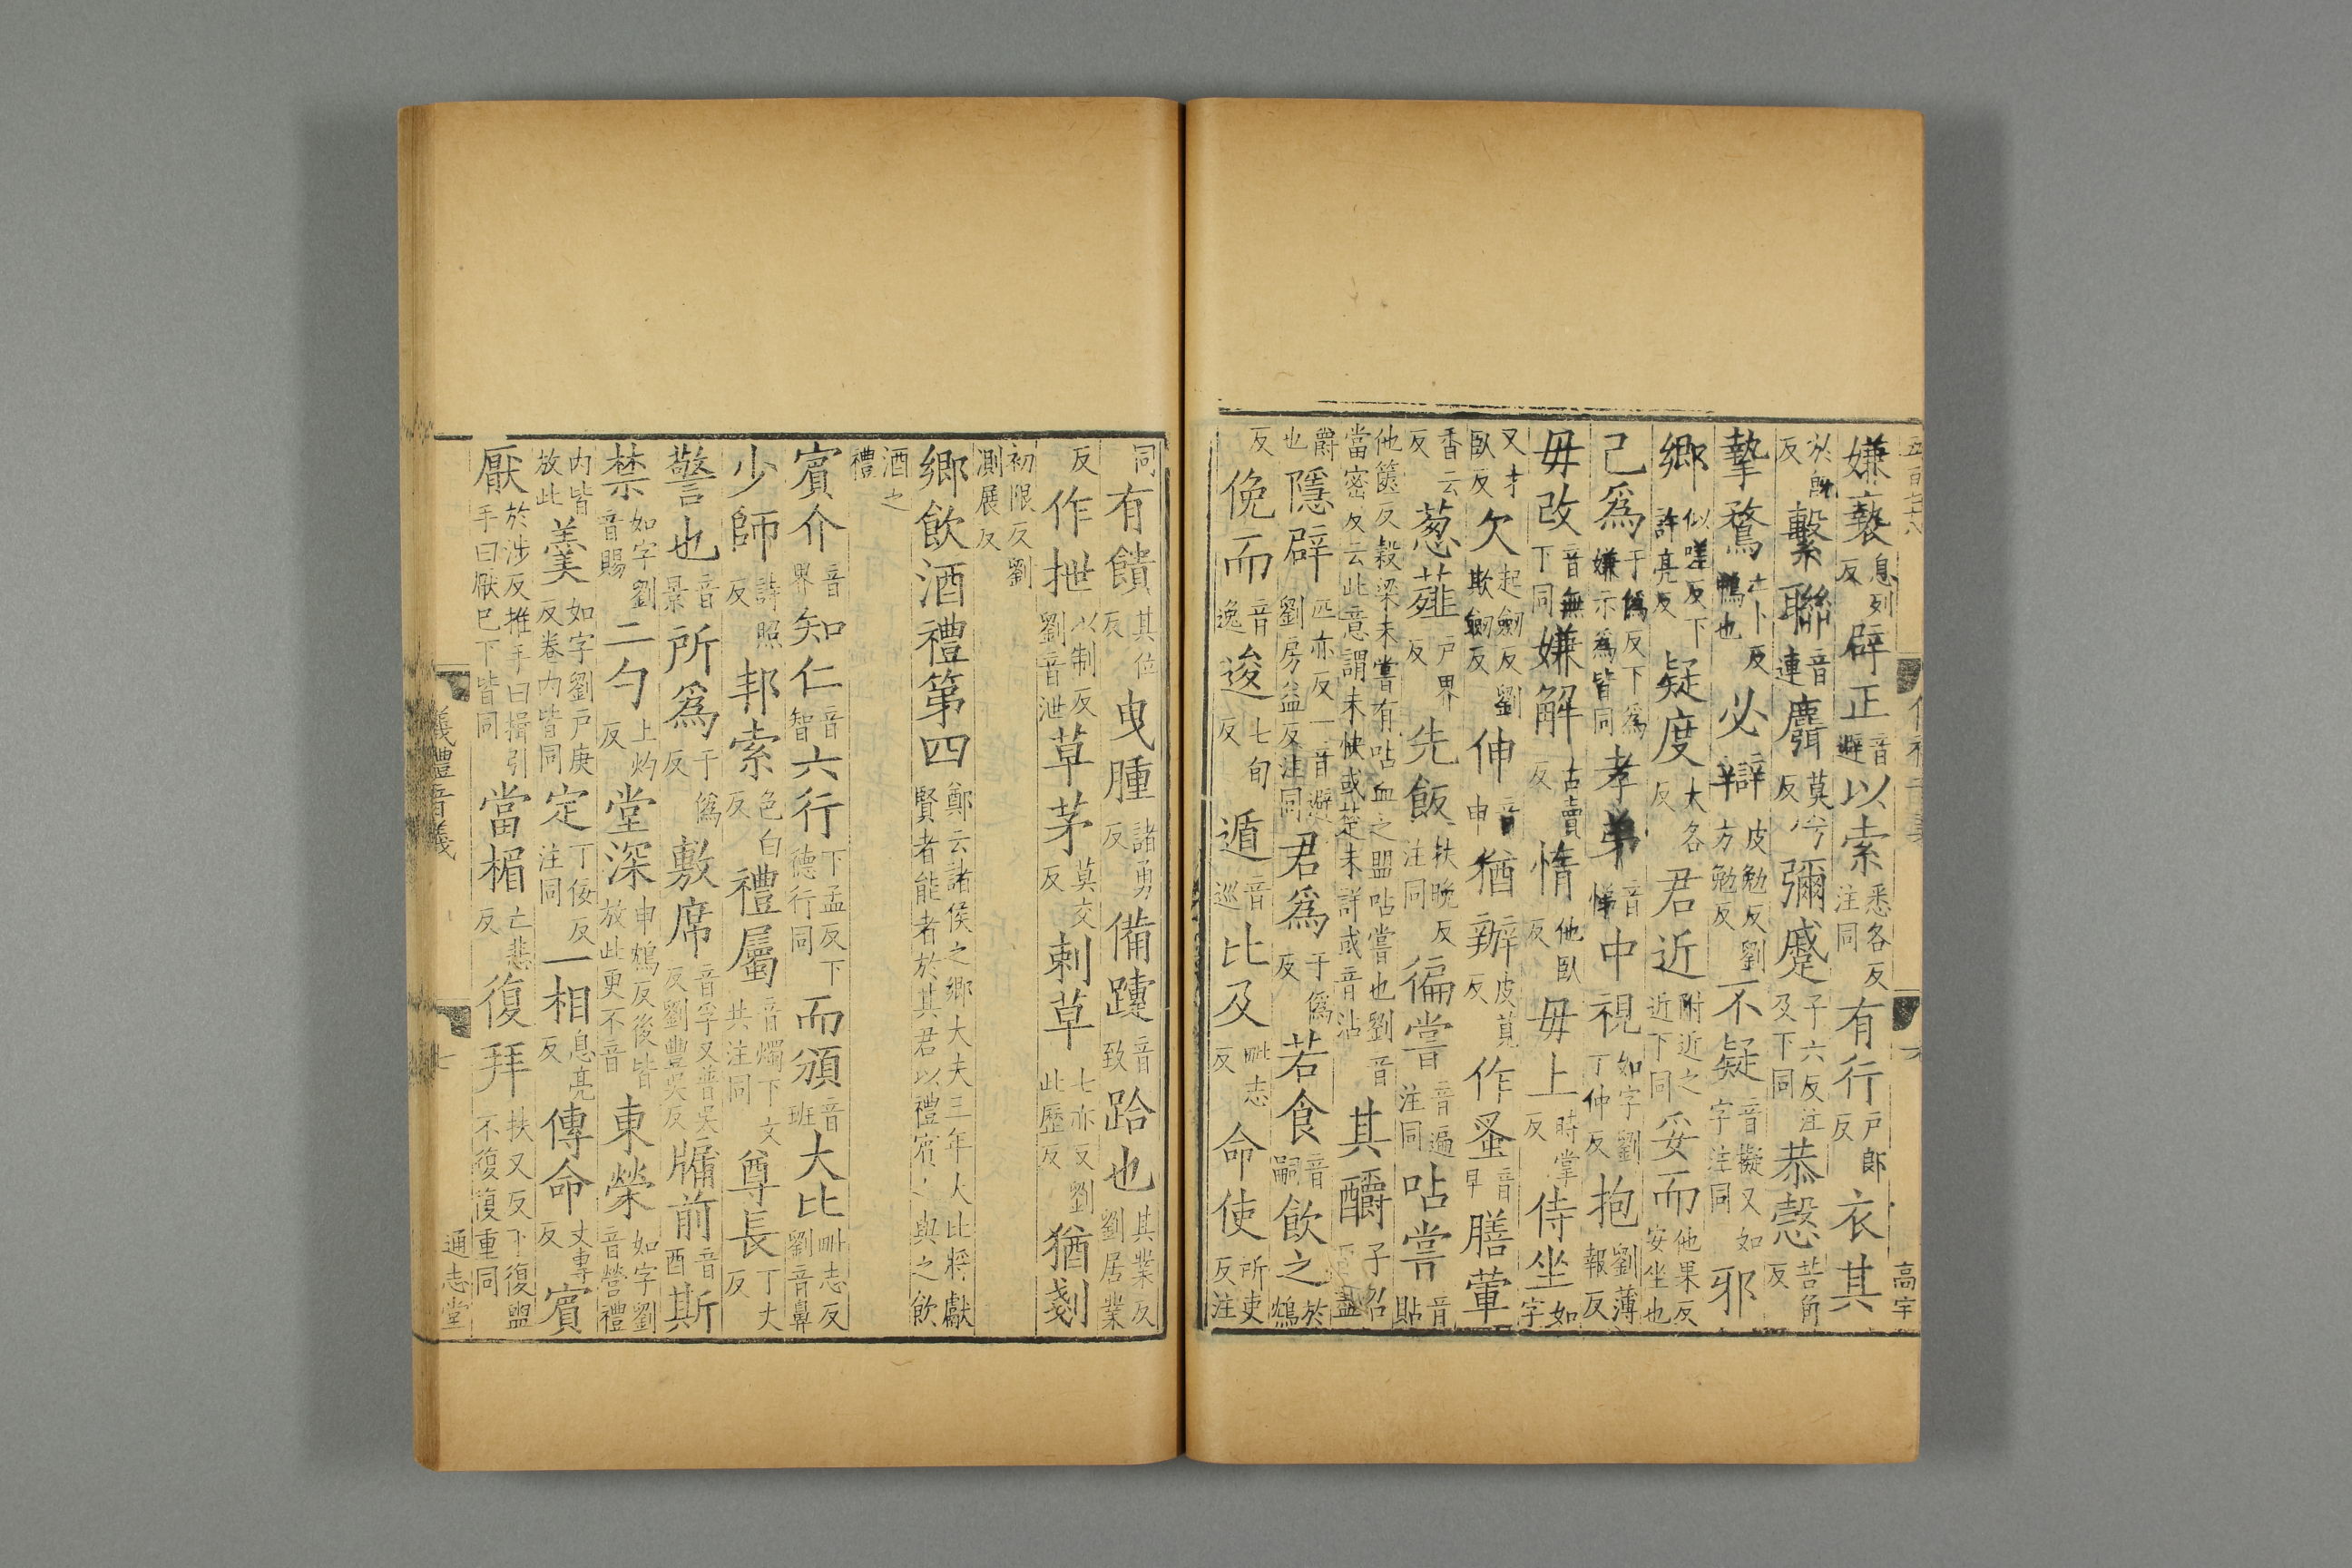 嫌褻息列反辟正音避以索悉各反注同有行户郎反衣其
於既反繫聯音連麛莫兮反彌蹙子六反注及下同恭慤苦角反
摯鶩亡卜反鴨也必辯皮勉反劉方勉反不疑音擬又如字注同邪
鄉似嗟反下許亮反疑度大各反君近附近之近下同妥而他果反安坐也
己爲于僞反下爲嫌示爲皆同孝弟音悌中視如字劉丁仲反抱劉薄報反
毋改音無下同嫌解古賣反惰他臥反毋上時掌反侍坐如字
又才臥反欠起劒反劉欺劒反伸音申猶辦皮莧反作蚤音早膳葷
香云反葱薤户界反先飯扶晚反注同徧嘗音遍注同呫嘗音貼
他篋反穀梁未嘗有呫血之盟呫嘗也劉音當密反云此意謂未快或楚未詳或音沾其釂子召反盡
爵也隱辟匹亦反一音避劉房益反注同君爲于僞反若食音嗣飲之於鴆
反俛而音逸逡七旬反遁音巡比及毗志反命使所吏反注
同有饋其位反曳腫諸勇反備躓音致跲也其業反劉居業
反作抴以制反劉音泄草茅莫交反刺草七亦反劉此歷反猶剗
初限反劉測展反
鄉飲酒禮第四鄭云諸侯之鄉大夫三年大比將獻賢者能者於其君以禮賓之與之飲
酒之禮
賓介音界知仁音智六行下孟反下德行同而頒音班大比毗志反劉音鼻
少師詩照反邦索色白反禮屬音燭下文共注同尊長丁丈反
警也音景所爲于僞反敷席音孚又普吳反劉豐吳反牖前音酉斯
禁如字劉音賜二勺上灼反堂深申鴆反後皆放此更不音東榮如字劉音營禮
内皆放此羹如字劉户庚反卷内皆同定丁佞反注同一相息亮反傳命丈專反賓
厭於涉反推手曰揖引手曰厭巳下皆同當楣亡悲反復拜扶又反下復盥不復復重同
高宇
儀禮音義
七
通志堂